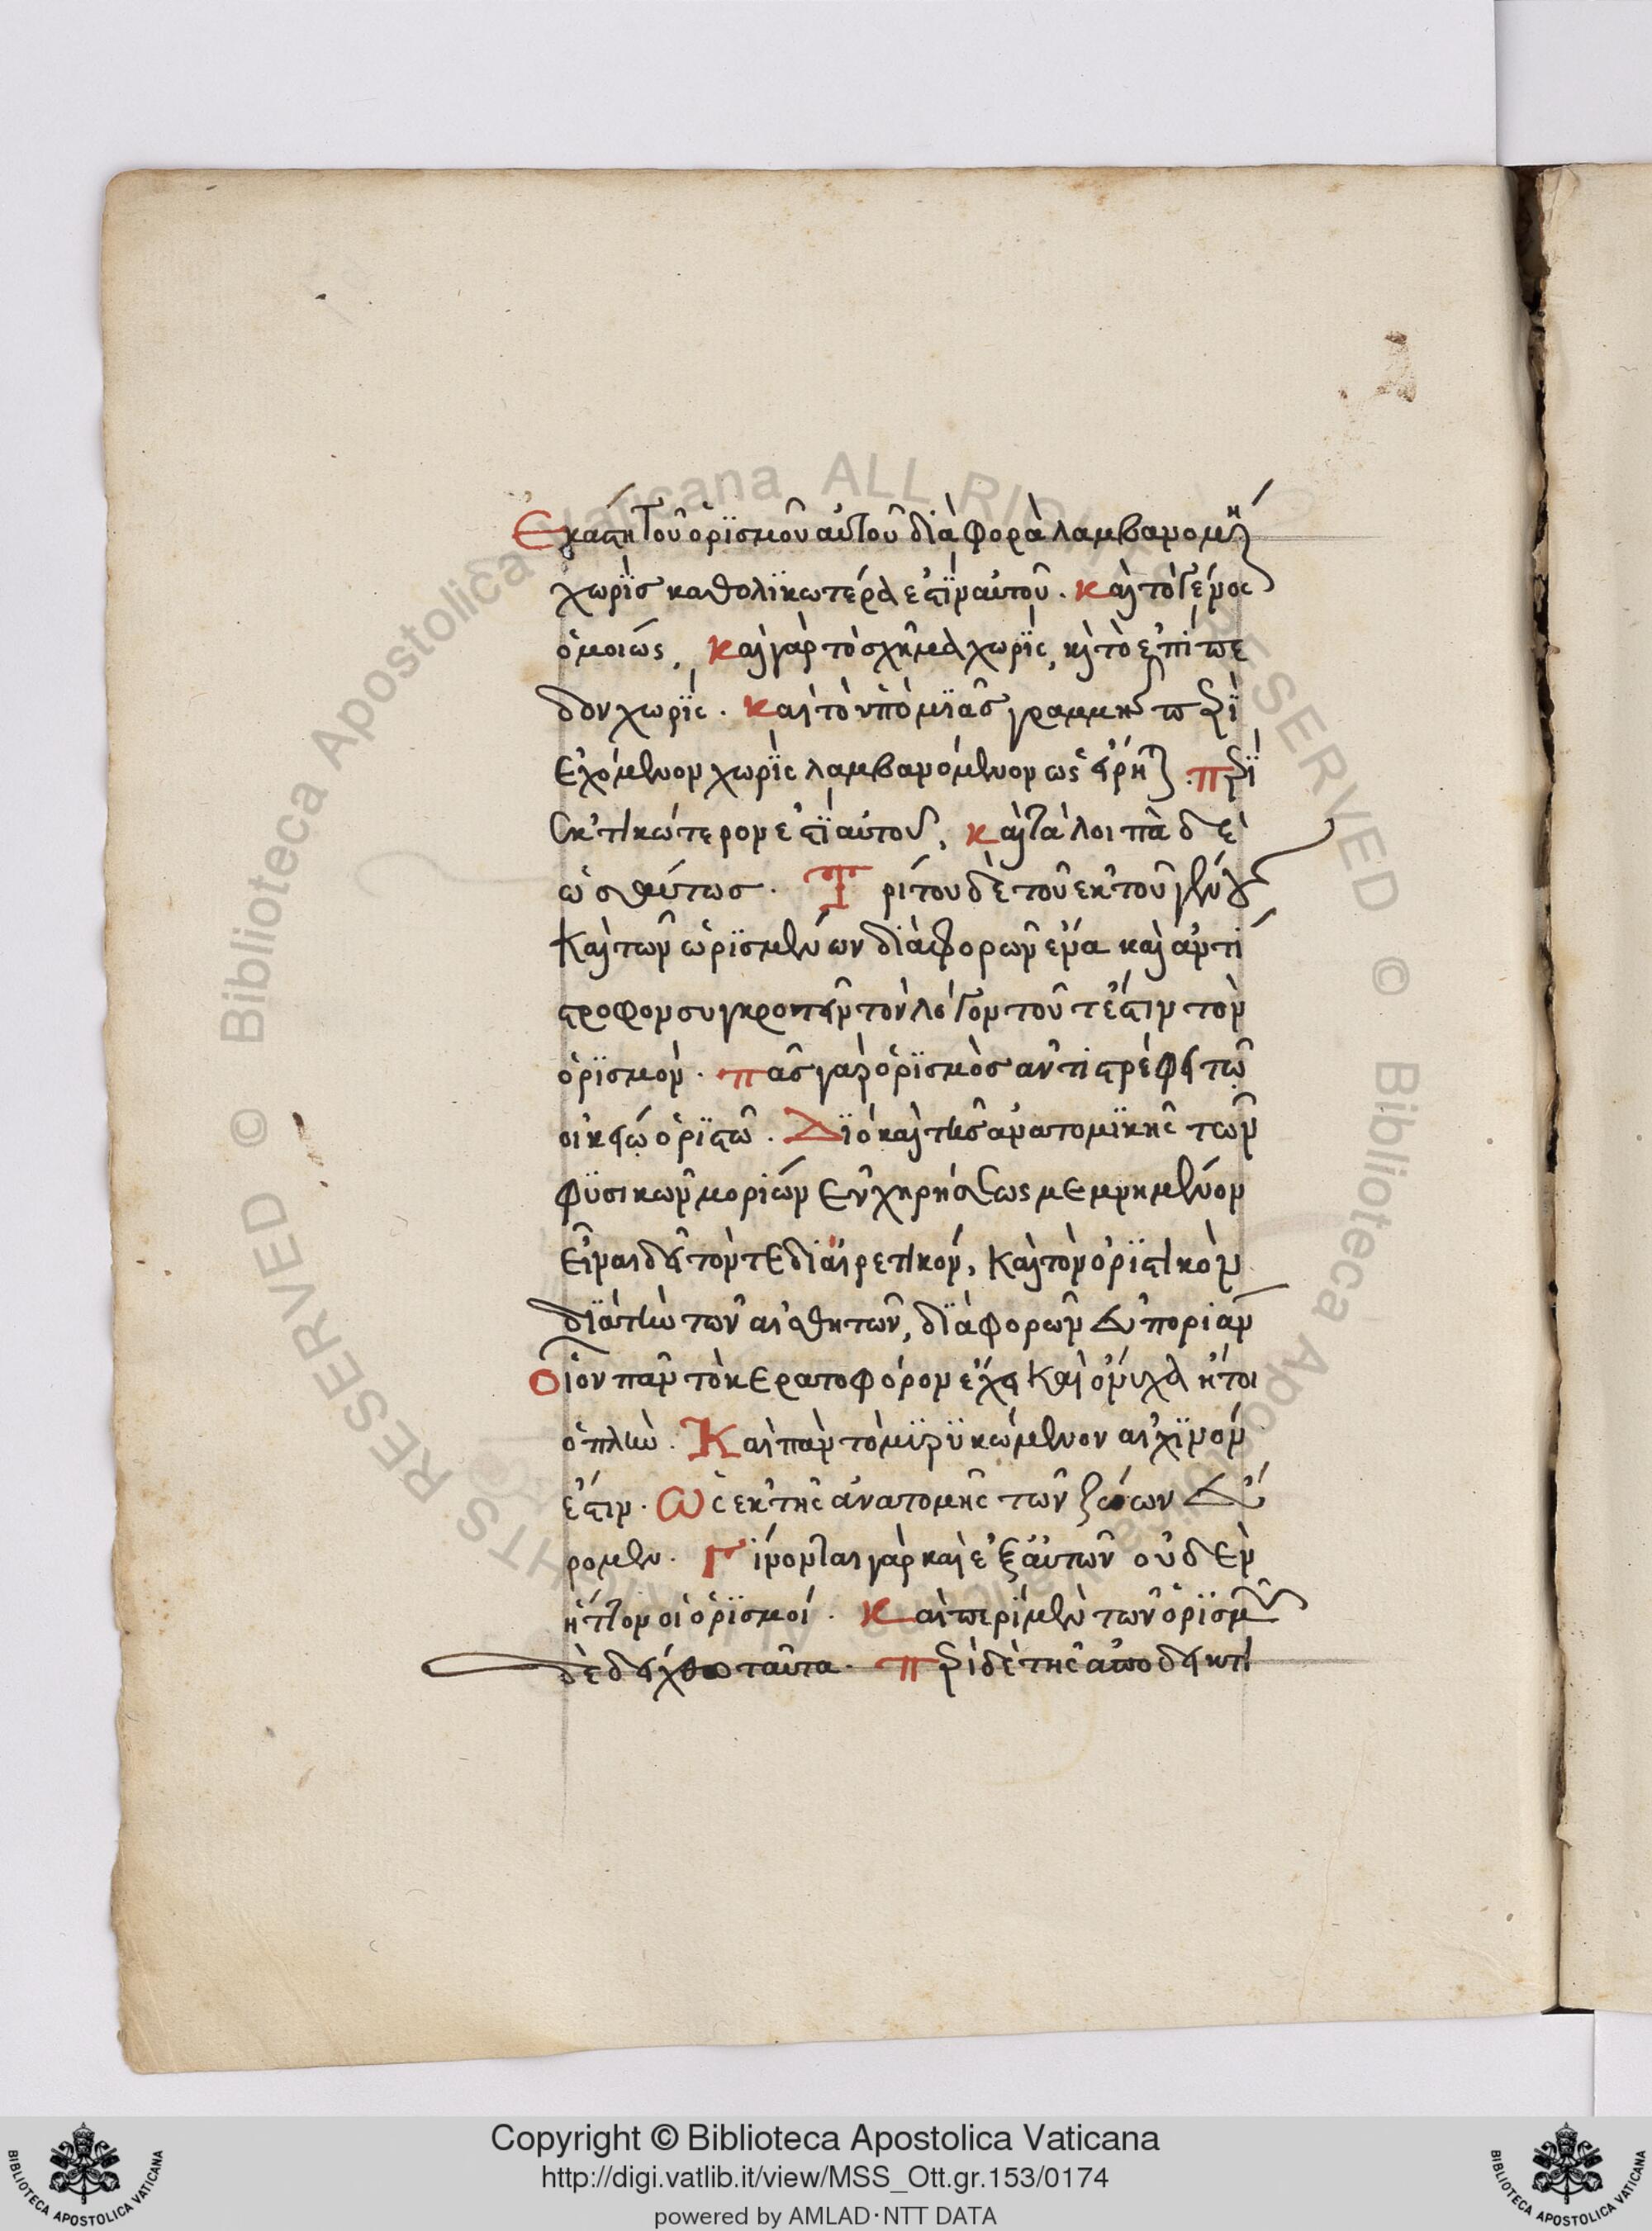 Ἑκάστη τοῦ ὁρϊσμοῦ αὐτοῦ διαφορὰ λαμβανομένη
χωρὶς καθολϊκωτέρα ἐστὶν αὐτοῦ. καὶ τὸ γένος
ὁμοίως, καὶ γὰρ τὸ σχῆμα χωρὶς, καὶ τὸ ἐπίπε
δον χωρίς. καὶ τὸ ὑπὸ μϊᾶς γραμμῆς περϊ
εχόμενον χωρὶς λαμβανόμενον ὡς εἴρηται. περϊ
εκτικώτερον ἐστὶ αὐτοῦ, καὶ τὰ λοιπὰ δὲ
ὡσαύτως. Τρίτου δὲ τοῦ ἐκ τοῦ γένους
καὶ τῶν ὡρϊσμένων διαφορῶν ἕνα καὶ ἀντί
στροφον συγκροτεῖν τὸν λόγον τοῦτέστιν τὸν
ὁρϊσμόν. πᾶς γὰρ ὁρϊσμὸς ἀντιστρέφει τῷ
οἰκείῳ ὁρϊστῷ. Δϊὸ καὶ τῆς ἀνατομϊκῆς τῶν
φϋσικῶν μορίων ἐγχηρήσεως μεμνημένον
εἶναι δεῖ τὸν τε διαιρετικόν, καὶ τὸν ὁρϊστικὸν
διὰ τὴν τῶν αἰσθητῶν, διαφορῶν εὐπορίαν
Οἷον πᾶν τὸ κερατοφόρον ἔχει καὶ ὄνυχα ἤτοι
ὁπλὴν. Καὶ πᾶν τὸ μϊρϋκώμενον ἀιχῖνον
ἐστιν. Ὡς ἐκ τῆς ἀνατομῆς τῶν ζώων εὕ
ρομεν. Γίνονται γὰρ καὶ ἐξ αὐτῶν οὐδὲν
ἧττον οἱ ὁρϊσμοί. Καὶ περὶ μὲν τῶν ὁρϊσμῶν
δεδείχθω ταῦτα. περὶ δὲ τῆς ἀποδεικτι
Copyright © Biblioteca Apostolica Vaticana
http://digi.vatlib.it/view/MSS_Ott.gr.153/0174
powered by AMLAD·NTT DATA